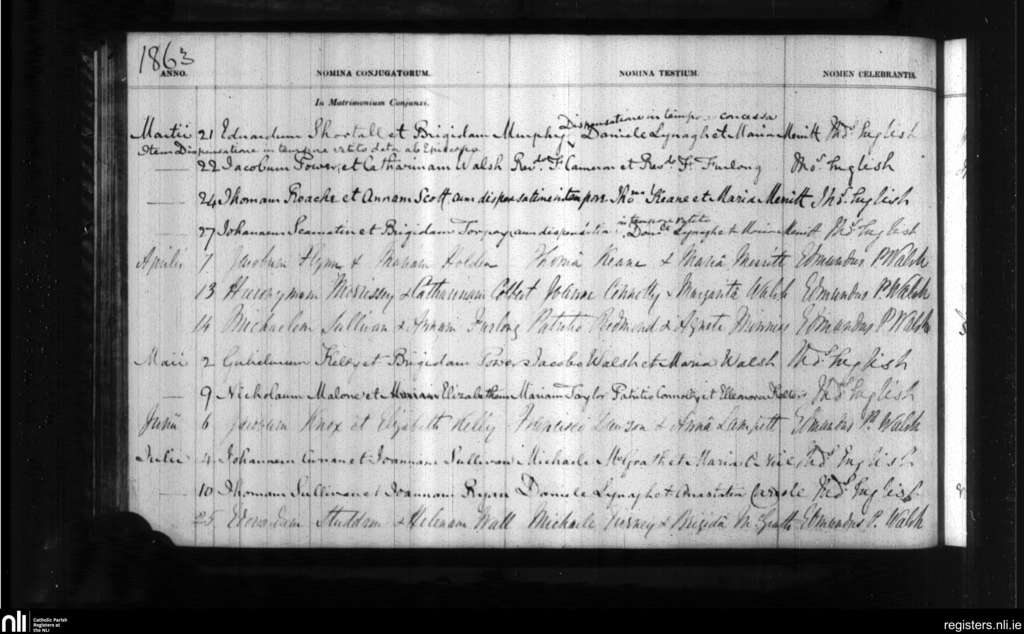 1863
ANNO. NOMINA CONJUGATORUM. NOMINA TESTIUM. NOMEN CELEBRANTIS.
In Matrimonium Conjunxi.
Dispensatione in tempore concessa
Martii 21 Eduardum Shortall et Brigidam Murphy Daniele Lynagh et Maria Merritt Thos. English
Item Dispensatione in tempore vetito data ab Episcopo
22 Jacobum Power et Catharinam Walsh Revd. F. Cameron et Revdo. Fr. Furlong Thos. English
24 Thomam Roache et Annam Scott cum dispensatione in tempore Thos. Keane et Maria Merritt Thos. English
in tempore vetito
27 Johannem et Brigidam cum dispensatione Daniele Lynagh et Maria Merritt Thos. English
Aprilis 1 Jacobum Flynn & Mariam Holden Thoma Keane & Maria Merritt Edmundus P Walsh
13 Hieronymum Morrissey & Catharinam Colbert Joanne Connolly & Margarita Walsh Edmundus P. Walsh
14 Michaelem Sullivan & Annam Furlong Patritio Redmond & Agnete Edmundus P Walsh
Maii 2 Gulielmum Kelly et Brigidam Power Jacobo Walsh et Maria Walsh Thos. English
9 Nicholaum Malone et Mariam Elizabetham Mariam Taylor Patritio Connolly et Elleonora Thos. English
Junii 6 Jacobum Knox et Elizabeth Kelly Francisco & Anna Edmundus P. Walsh
Julii 4 Johannem et Joannam Sullivan Michaele McGrath et Maria Thos. English
10 Thomam Sullivan et Joannam Ryan Daniele Lynagh et Anastatia Carlisle Thos. English
25 Edwardum Studdrum & Helenam Wall Michaele & Brigida McGrath Edmundus P. Walsh
nli Catholic Parish Registers at the NLI
registers.nli.ie